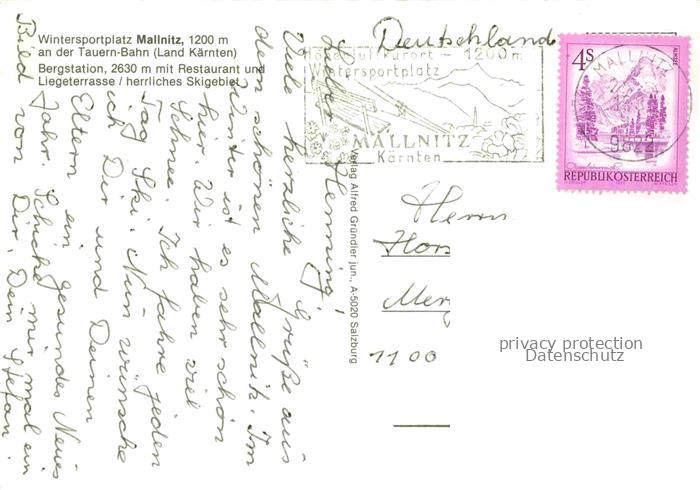 Wintersportplatz Mallnitz, 1200 m
an der Tauern-Bahn (Land Kärnten)
Bergstation, 2630 m mit Restaurant und
Liegeterrasse / herrliches Skigebiet
Lieber Henning!
Viele herzliche Grüße aus
dem schönen Mallnitz. Im
Winter ist es sehr schön
hier. Wir haben viel
Schnee. Ich fahre jeden
Tag Ski. Nun wünsche
ich Dir und Deinen
Eltern ein gesundes Neues
Jahr. Schicke mir mal ein
Bild von Dir. Dein Stefan.
Verlag Alfred Gründler jun., A-5020 Salzburg
Deutschland
kurort – 1200 m
Wintersportplatz
MALLNITZ
Kärnten
4S
ALMSEE
REPUBLIK ÖSTERREICH
MALLNITZ
9822
Herrn
Hors
Mer
1100
privacy protection
Datenschutz